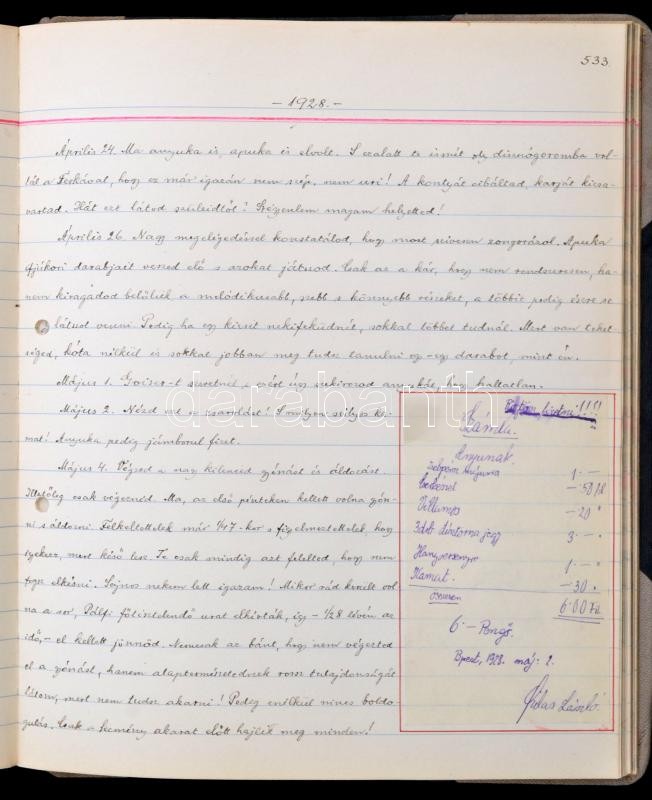 533
- 1928. -
Április 24. Ma anyuka is, apuka is elvolt. S ezalatt te ismét oly disznógoromba vol-
tál a Terkával, hogy ez már igazán nem szép, nem uri! A kontyát cibáltad, karját kicsa-
vartad. Hát ezt látod szüleidtől? Szégyenlem magam helyetted!
Április 26. Nagy megelégedéssel konstatálod, hogy most szivesen zongorázol. Apuka
ifjukori darabjait veszed elő s azokat játszod. Csak az a kár, hogy nem rendszeresen, ha-
nem kiragadod belőlük a melódikusabb, szebb s könnyebb részeket, a többit pedig észre se
látszod venni. Pedig ha egy kicsit nekifeküdnél, sokkal többet tudnál. Mert van tehet-
séged, kóta nélkül is sokkal jobban meg tudsz tanulni egy-egy darabot, mint én.
Május 1. szeretnél s azért úgy anyukát, hogy hallatlan.
Május 2. Nézd ezt a számlát! S milyen sulyos ka-
mat! Anyuka pedig jámborul fizet.
Május 4. Végzed a nagy kilenced gyónást és áldozást.
Illetőleg csak végeznéd. Ma, az első pénteken kellett volna gyón-
ni s áldozni. Felkeltettelek már 1/47-kor s figyelmeztettelek, hogy
igyekezz, mert késő lesz. Te csak mindig azt felelted, hogy nem
fogsz elkésni. Sajnos nekem lett igazam! Mikor rád került vol-
na a sor, Pálfi főtisztelendő urat elhivták, igy - 1/28 lévén az
idő, - el kellett jönnöd. Nemcsak az bánt, hogy nem végezted
el a gyónást, hanem alaptermészetednek rossz tulajdonságát
látom, mert nem tudsz akarni! Pedig enélkül nincs boldo-
gulás. Csak a kemény akarat előtt hajlik meg minden!
fizetni!!!!
Számla.
Anyunak.
1.-
-50 fil
Villamos -20 "
3.- "
Hangverseny 1.- "
Kamat. -30 "
összesen 6.00 Fil.
6.- Pengő.
Bpest, 1928. máj. 2.
László
darabanth